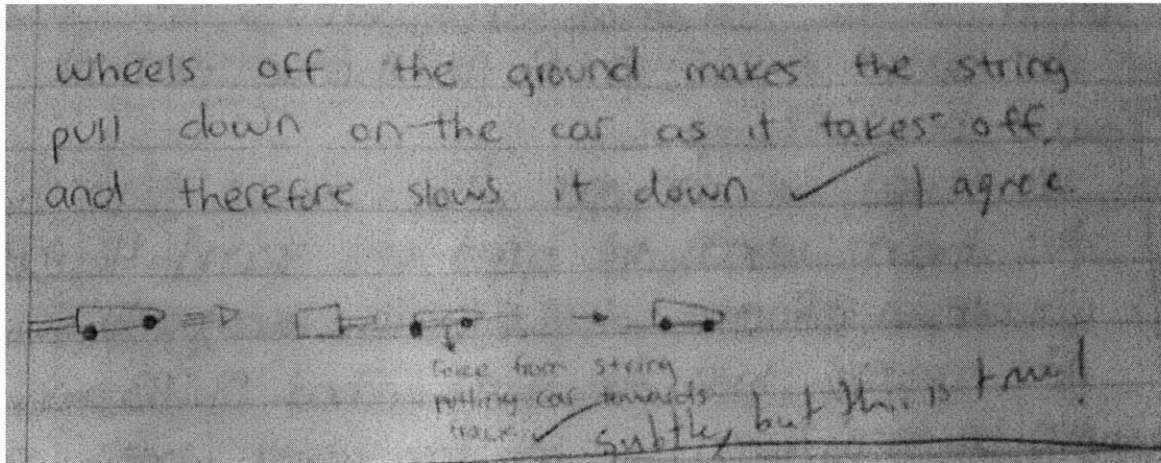 wheels off the ground makes the string
pull down on the car as it takes off,
and therefore slows it down ✓ I agree.
force from string
pulling car towards
track ✓
subtle, but this is true!